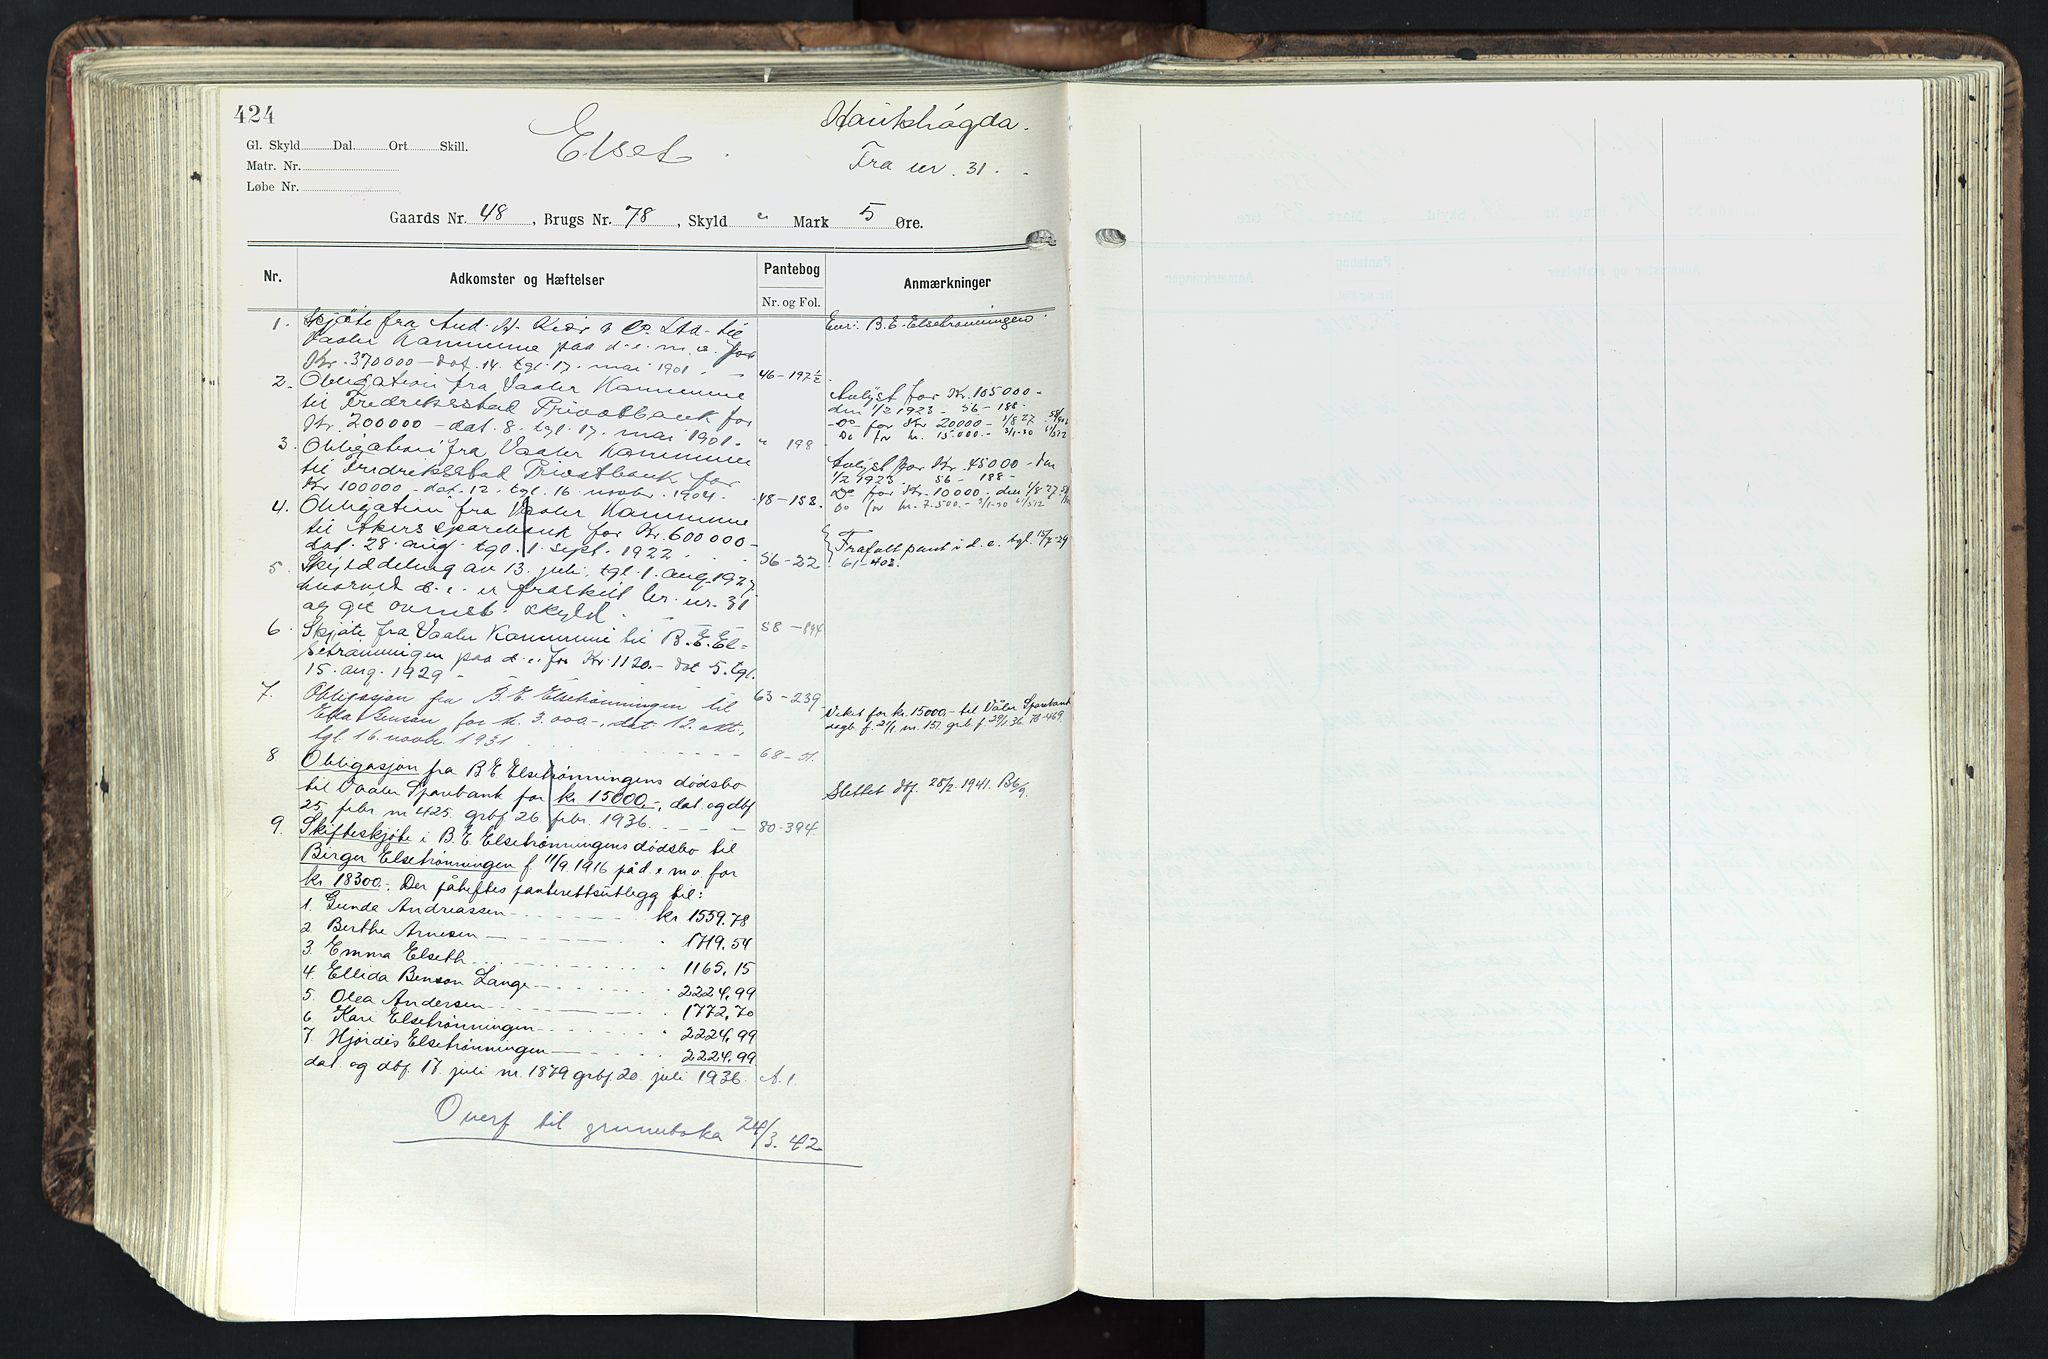 424
Elset. Haukhögda.
Gl. Skyld Dal. Ort Skill.
Matr. Nr.
Fra nr. 31.
Løbe Nr.
Gaards Nr. 48, Brugs Nr. 78, Skyld " Mark 5 Øre.
Nr. Adkomster og Hæftelser Pantebog Anmærkninger
Nr. og Fol.
1. Skjøte fra And. H. Kiær & Co. Ltd. til
Vaaler Kommune paa d. e. m. a. for
Kr. 370000 - dat. 14. tgl. 17. mai 1901. 46-197½
Eier: B. E. Elsetrønningen.
2. Obligation fra Vaaler Kommune
til Fredriksstad Privatbank for
Kr. 200000 - dat. 8. tgl. 17. mai 1901. " 198
Avlyst for Kr. 105000 -
den 1/2 1923 - 56 - 188 -
Do for Kr 20000 - 1/8 27
Do for kr. 15.000.- 3/1-30 61/512
3. Obligation fra Vaaler Kommune
til Fredriksstad Privatbank for
Kr 100000 - dat. 12. tgl. 16. novbr. 1904. 48-158.
Avlyst for Kr. 45000 - den
1/2 1923. 56 - 188 -
Do for Kr. 10000 - den 1/8 27
Do for kr. 7.500.- 3/1-30 61/512
4. Obligation fra Vaaler Kommune
til Akers sparebank for Kr. 600000 -
dat. 28. aug. tgl. 1. sept. 1922. 56-22
Frafalt pant i d. e. tgl. 15/7-29
61-403.
5. Skylddeling av 13. juli, tgl. 1. aug. 1927
hvorved d. e. er fraskilt br. nr. 31
og git ovennt. skyld. 58-894
6. Skjøte fra Vaaler Kommune til B. E. El-
setrønningen paa d. e. for Kr. 1120.- dat 5. tgl.
15. aug. 1929 63-239
7. Obligasjon fra B. E. Elsetrønningen til
Benson, for kr. 3.000.-, dat. 12. okt.,
tgl. 16. novbr. 1931 68-
Veket for kr. 15000,- til Våler Sparebank
dagb. f. 21/1 nr. 157. grb. f 29/1.36. 70-469.
8 Obligasjon fra B E Elsetrønningens dødsbo
til Vaaler Sparebank for kr. 15000,-, dat. og dbf
25. febr nr 425. grbf 26 febr. 1936. 80-394.
Slettet dbf. 28/2. 1941. B6/9.
9. Skifteskjøte i B. E. Elsetrønningens dødsbo til
Birger Elsetrønningen f 11/9.1916 på d. e m. v. for
kr. 18300.-. Der påheftes panterettsutlegg til:
1. Gunda Andreassen kr 1559.78
2. Berthe Arnesen " 1719.54
3 Emma Elseth " 1165,15
4. Ellida Benson Lange " 2224,99
5. Olea Andersen " 1772,70
6 Kare Elsetrønningen " 2224,99
7. Hjørdis Elsetrønningen " 2224,99
dat. og dbf. 17. juli nr. 1879 grbf. 20. juli 1936. A. 1.
Overf til grunnboka 24/3. 42